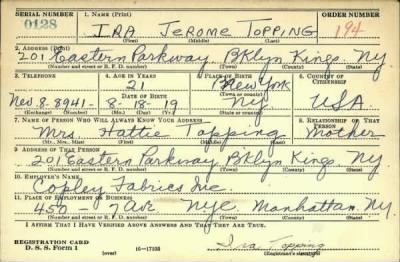 SERIAL NUMBER 1. NAME (Print) ORDER NUMBER
0128 IRA JEROME TOPPING 194
(First) (Middle) (Last)
2. ADDRESS (Print)
201 Eastern Parkway Bklyn Kings NY
(Number and street or R. F. D. number) (Town) (County) (State)
3. TELEPHONE 4. AGE IN YEARS 5. PLACE OF BIRTH 6. COUNTRY OF CITIZENSHIP
21 New York
DATE OF BIRTH (Town or county)
Nev. 8-3941- 8-18-19 NY USA.
(Exchange) (Number) (Mo.) (Day) (Yr.) (State or country)
7. NAME OF PERSON WHO WILL ALWAYS KNOW YOUR ADDRESS 8. RELATIONSHIP OF THAT PERSON
Mrs. Hattie Topping Mother
(Mr., Mrs., Miss) (First) (Middle) (Last)
9. ADDRESS OF THAT PERSON
201 Eastern Parkway Bklyn Kings NY
(Number and street or R. F. D. number) (Town) (County) (State)
10. EMPLOYER'S NAME
Copley Fabrics Inc.
11. PLACE OF EMPLOYMENT OR BUSINESS
450 - 7 Ave NYC Manhattan NY.
(Number and street or R. F. D. number) (Town) (County) (State)
I AFFIRM THAT I HAVE VERIFIED ABOVE ANSWERS AND THAT THEY ARE TRUE.
REGISTRATION CARD
D. S. S. Form 1 (over) 16-17105 Ira Topping
(Registrant's signature)